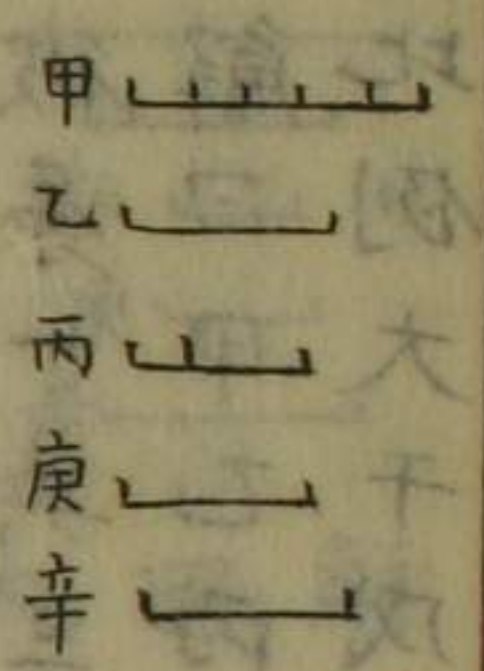 甲
乙
丙
庚
辛